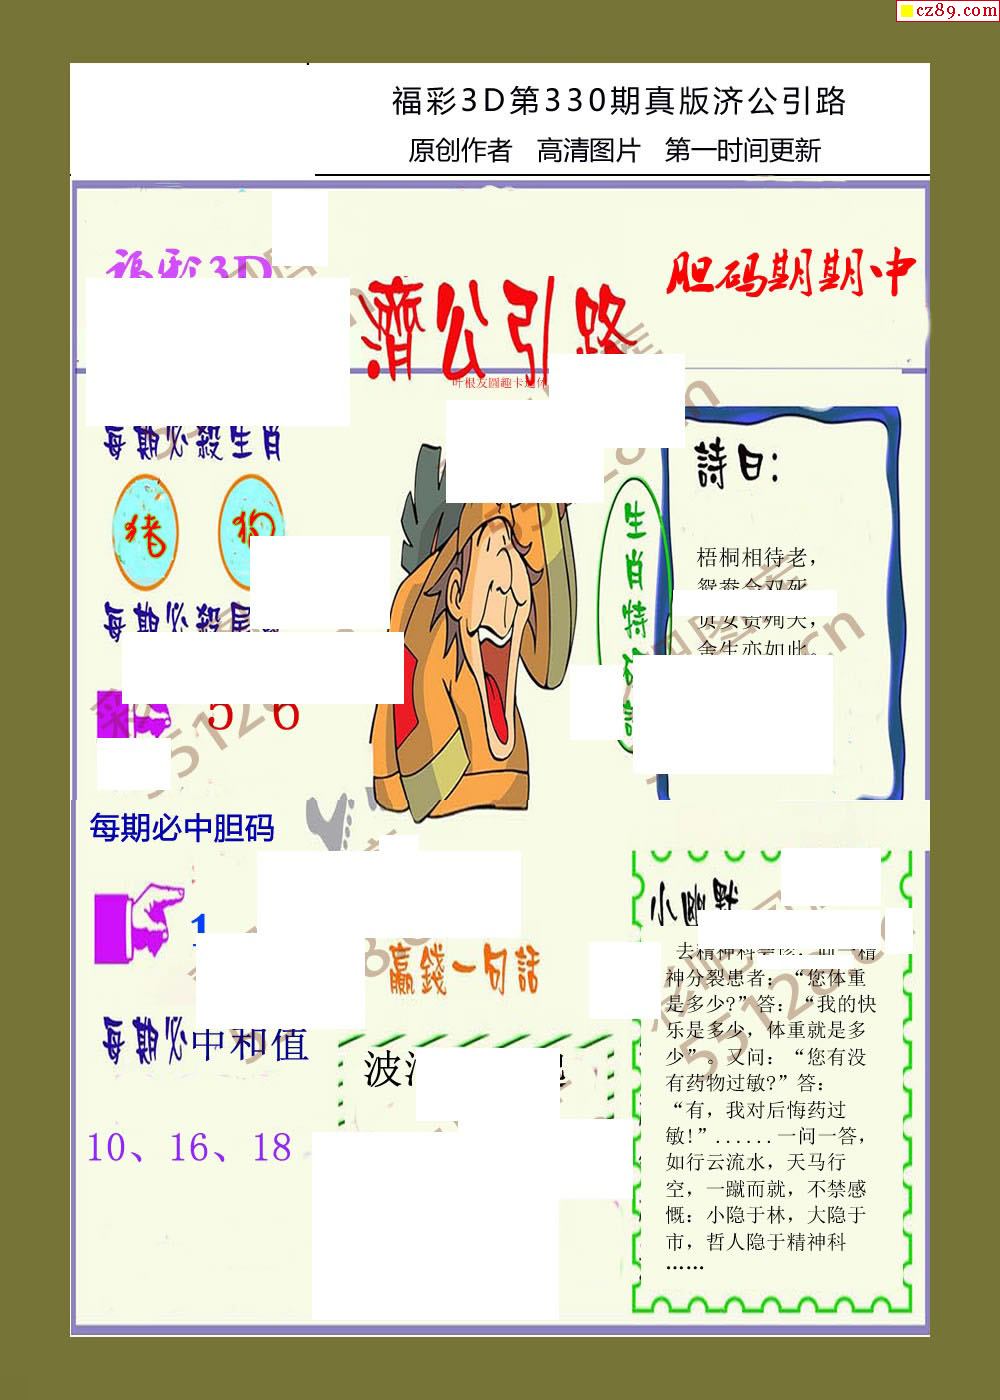 cz89.com
福彩3D第330期真版济公引路
原创作者 高清图片 第一时间更新
福彩3D
濟公引路
胆码期期中
叶根友圆趣卡通体
每期必殺生肖
猪 狗
每期必殺尾
5 6
生肖特码詩
詩曰:
梧桐相待老，
鸳鸯会双死
贞女贵殉夫，
舍生亦如此。
每期必中胆码
1
贏錢一句話
每期必中和值
波
10、16、18
小幽默
去精神科
神分裂患者：“您体重
是多少?”答：“我的快
乐是多少，体重就是多
少”。又问：“您有没
有药物过敏?”答：
“有，我对后悔药过
敏!”......一问一答，
如行云流水，天马行
空，一蹴而就，不禁感
慨：小隐于林，大隐于
市，哲人隐于精神科
……